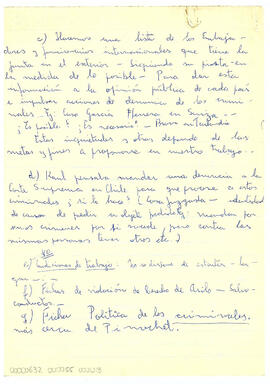 c) Hacemos una lista de los Embaja-
dores y funcionarios internacionales que tiene la
Junta en el exterior - siguiendo su pista en
la medida de lo posible - Para dar esta
información a la opinión pública de cada país
e impulsar acciones de denuncia de los crimi-
nales. Ej. Caso García Herrera en Suiza...
¿Es posible? ¿Es necesario?
Estas inquietudes y otras depende de las
metas y fines a proponerse en nuestro trabajo...
d) Raúl pensaba mandar una denuncia a la
Corte Suprema en Chile para que procese a estos
criminales; si lo hace? (Cosa juzgada - identidad
de causa de pedir, objeto pedido. Ej: mandan por
unos crímenes por si sucede, pero contra las
mismas personas tener otros etc.)
e) Condiciones de trabajo: No se dispone de estantes - lu-
gar - - ;
f) Fichas de violación de Derecho de Asilo - Salvo-
conductos -
g) Fichar Política de los criminales,
más cerca de Pinochet.
00000632 000055 000013